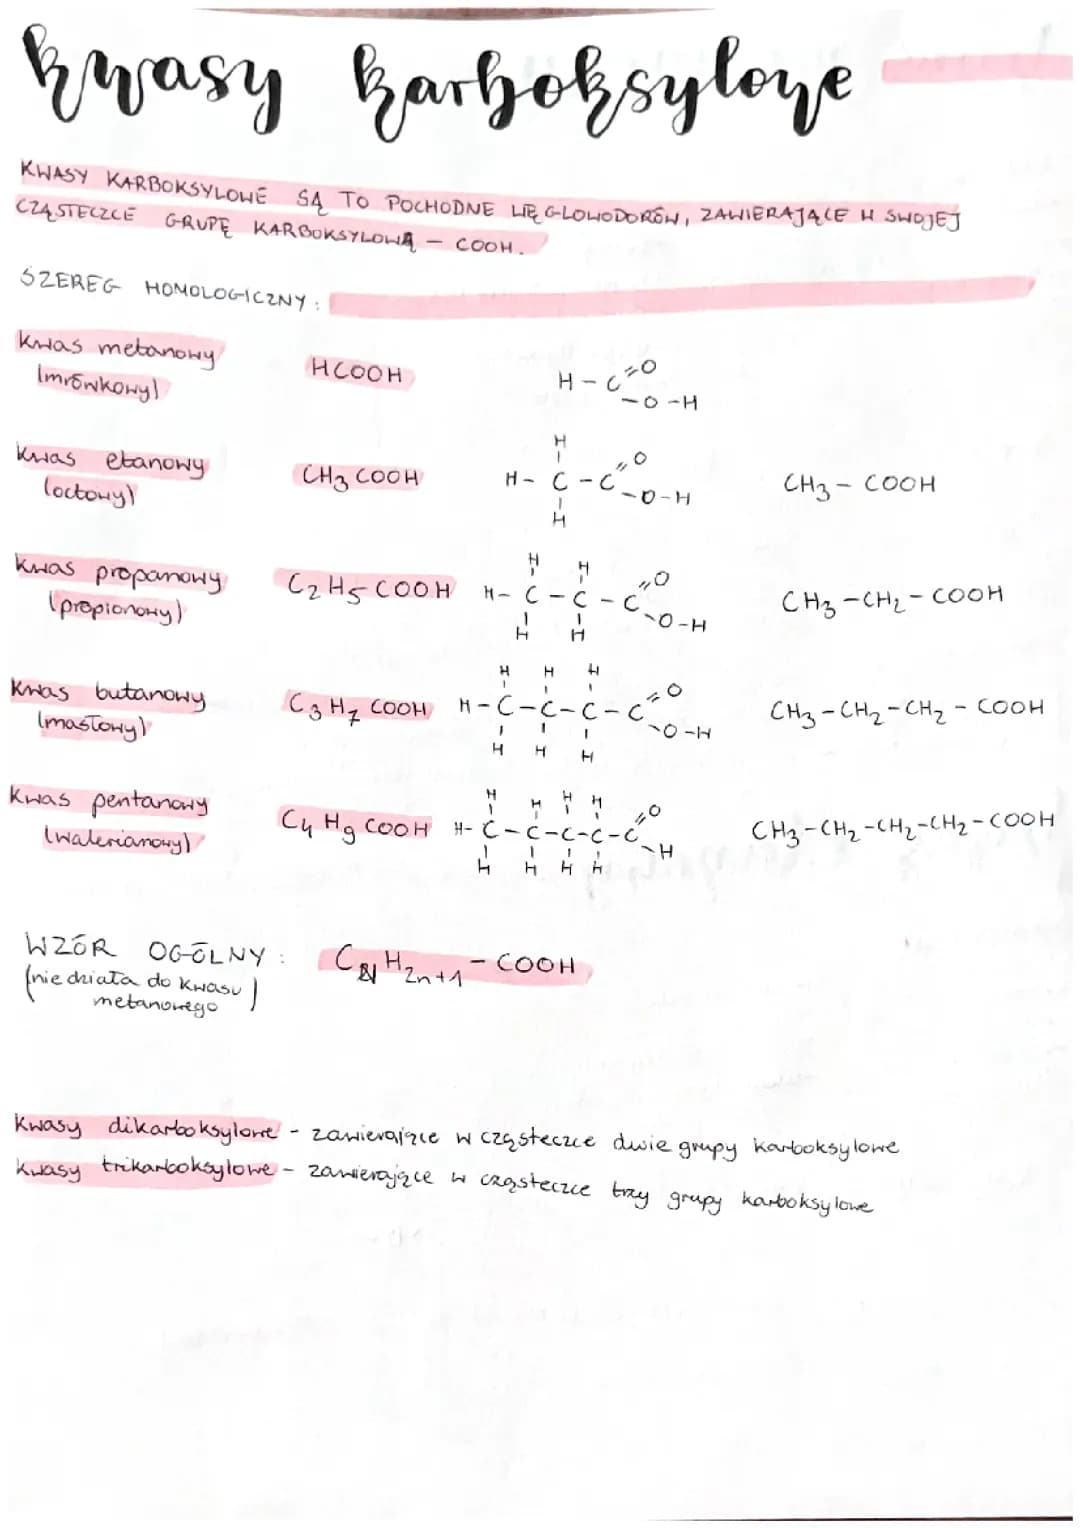 kwasy karboksylowe
KWASY KARBOKSYLOWE SĄ TO POCHODNE WĘGLOWODORÓW, ZAWIERAJĄCE W SWOJEJ
CZĄSTECZCE GRUPĘ KARBOKSYLOWĄ - COOH.
SZEREG HOMOLOGICZNY:
kwas metanowy (mrówkowy) HCOOH H-C=O -O-H
kwas etanowy (octowy) CH3COOH H H-C-C=O -O-H H CH3-COOH
kwas propanowy (propionowy) C2H5COOH H H H-C-C-C=O -O-H H H CH3-CH2-COOH
kwas butanowy (masłowy) C3H7COOH H H H H-C-C-C-C=O -O-H H H H CH3-CH2-CH2-COOH
kwas pentanowy (walerianowy) C4H9COOH H H H H H-C-C-C-C-C=O -H H H H H CH3-CH2-CH2-CH2-COOH
WZÓR OGÓLNY: CnH2n+1-COOH
(nie działa do kwasu
metanowego)
kwasy dikarboksylowe - zawierające w cząsteczce dwie grupy karboksylowe
kwasy trikarboksylowe - zawierające w cząsteczce trzy grupy karboksylowe